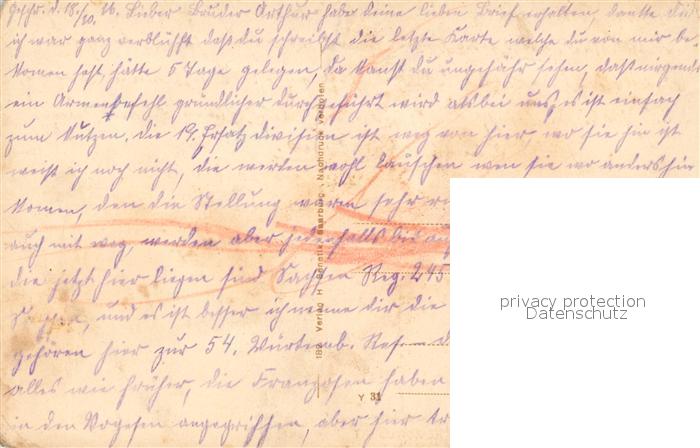 Geschr. d. 18./10. 16. Lieber Bruder Arthur habe deine lieben Brief erhalten, dankte dir
ich war ganz verblüfft daß du schreibst die letzte Karte welche du von mir be
komen hast hätte 5 Tage gelegen, da kanst du ungefähr sehn, daß nirgends
ein Armeebefehl gründlicher durchgeführt wird als bei uns, es ist einfach
zum Kutzen, die 19. Ersatz division ist weg von hier, wo sie hin ist
weiß ich noch nicht, die werden wohl lauschen wen sie wo anders hin
komen, den die Stellung waren sehr
auch mit weg, werden aber jedenfalls bei
die jetzt hier liegen sind Sachsen Reg. 245
und es ist besser ich nenne dir die
gehören hier zur 54. Würtemb. Res.
alles wie früher, die Franzosen haben
in den Vogesen angegriffen, aber hier
182 Verlag H. Saarburg - Nachdruck verboten
Y 31
privacy protection
Datenschutz